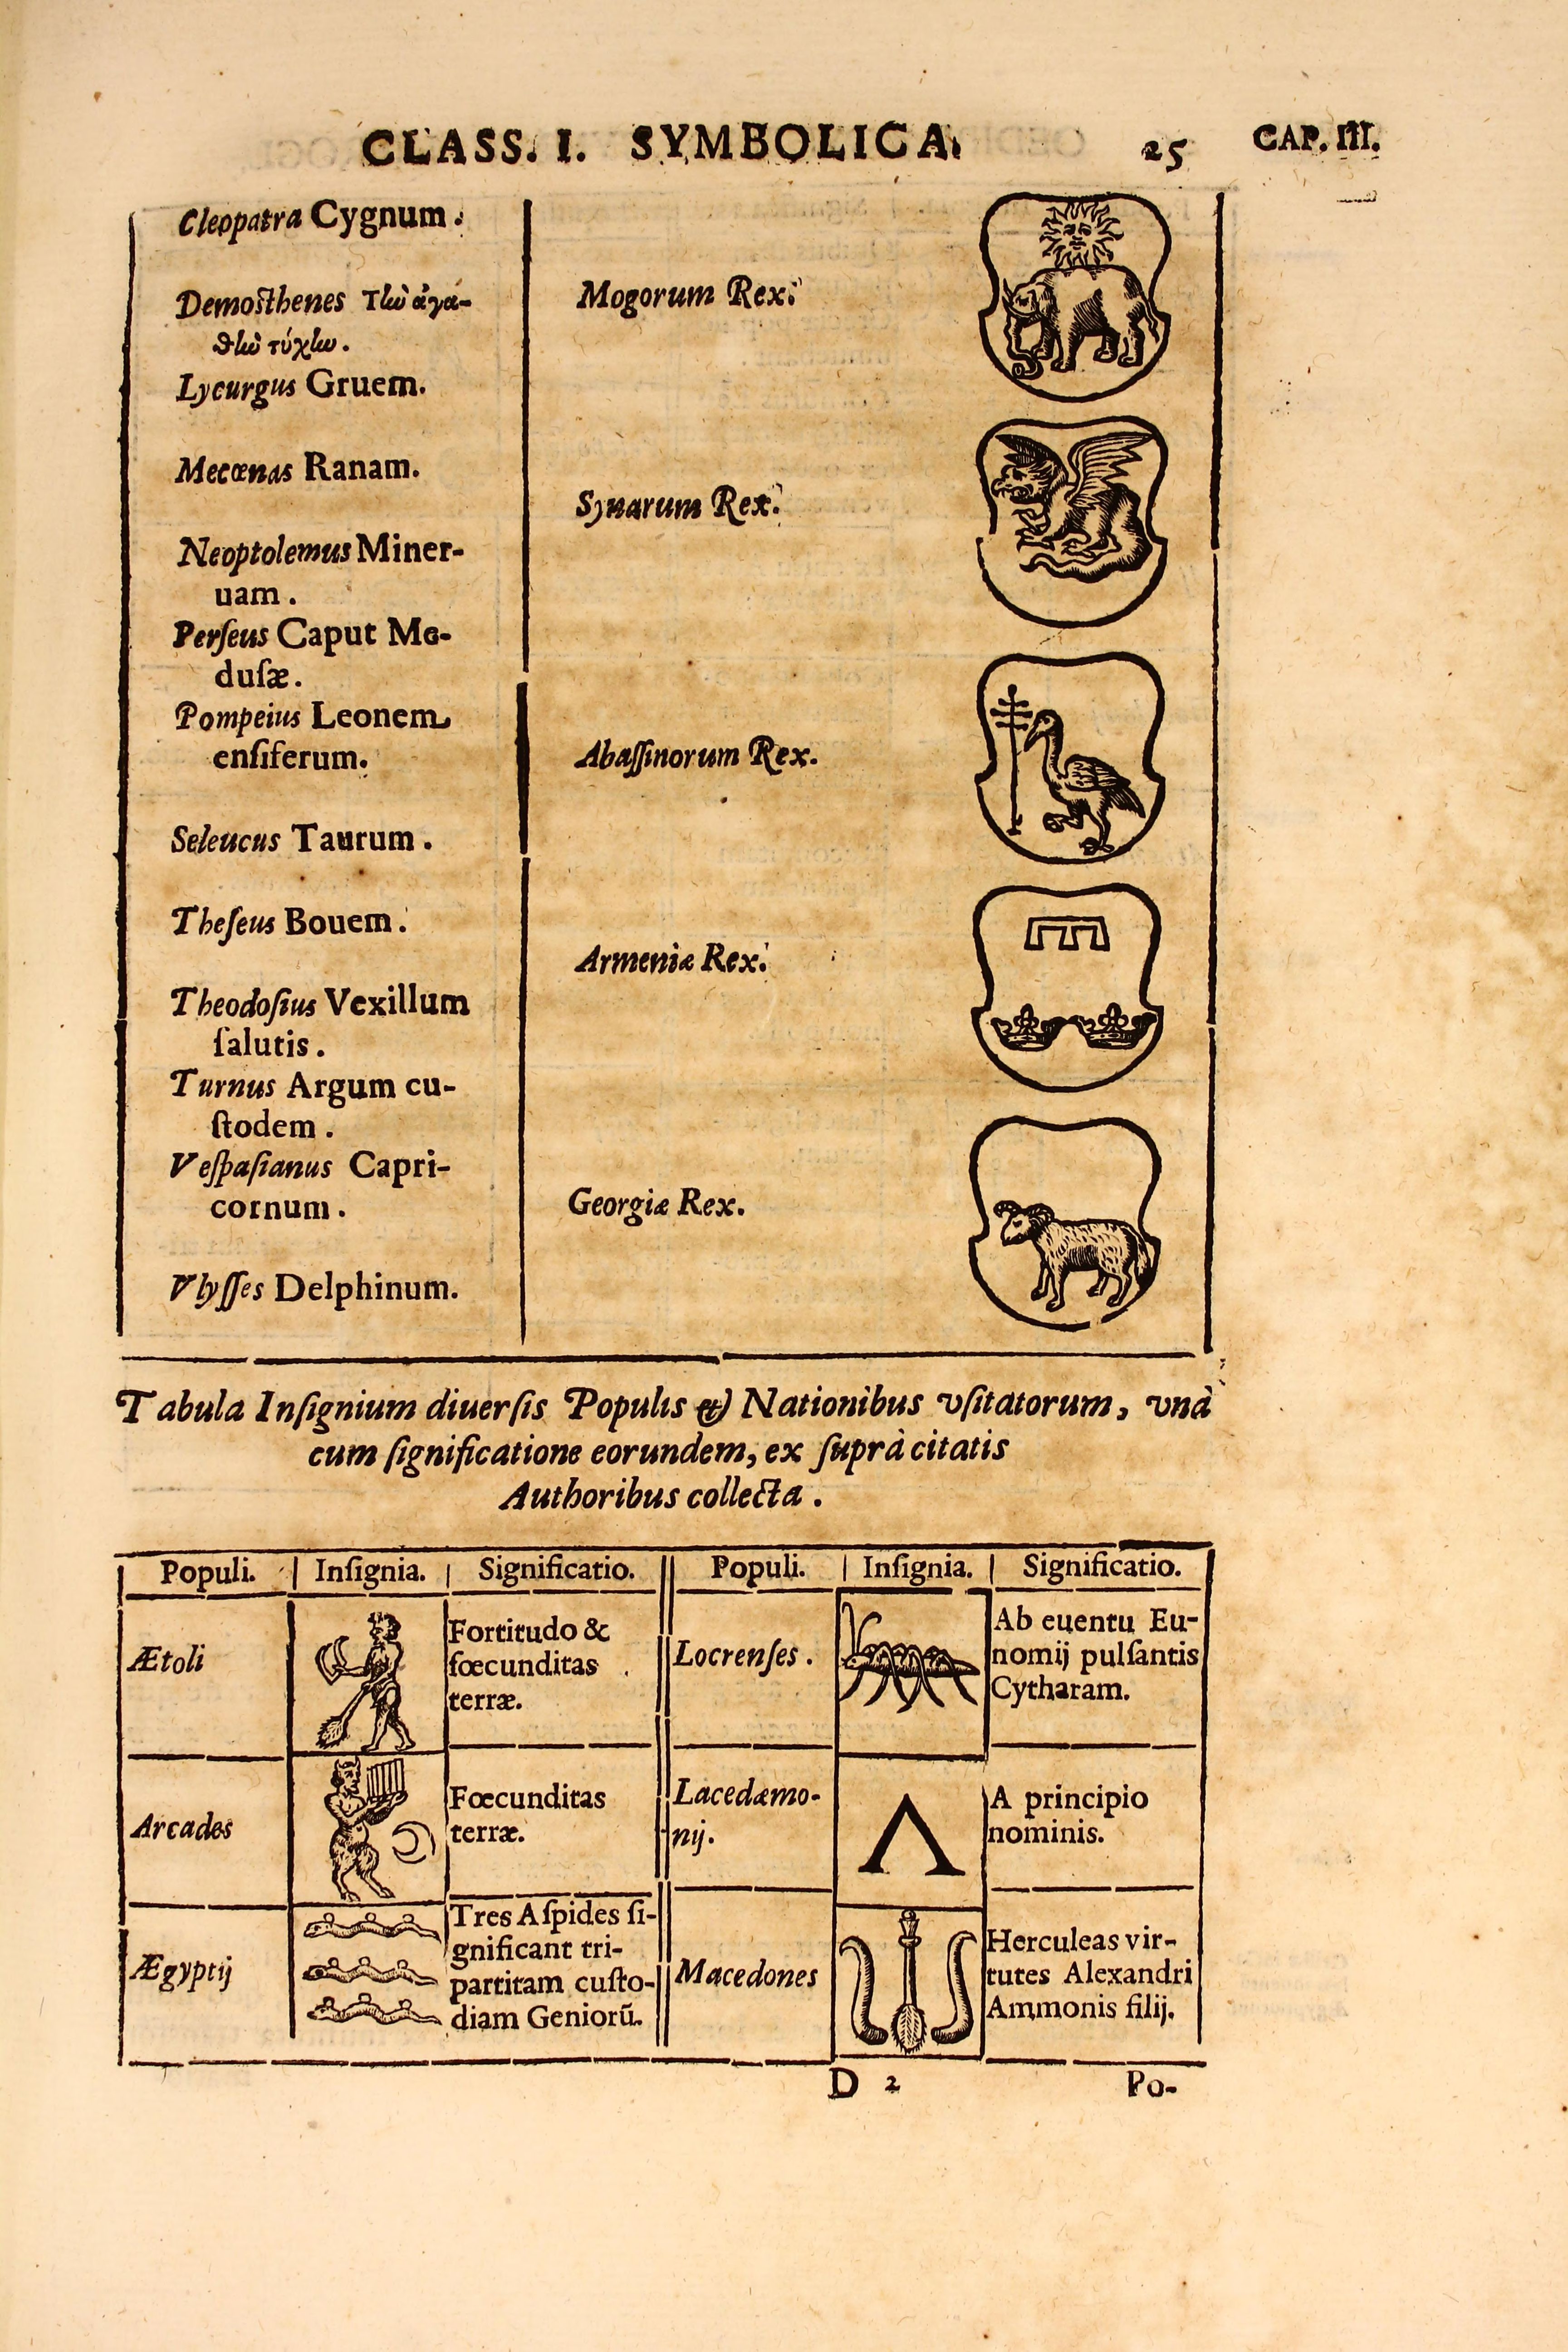 CLASS. I. SYMBOLICA. 25 CAP. III.
Cleopatra Cygnum.
Demosthenes Τὴν ἀγα-
θὴν τύχην.
Lycurgus Gruem.
Mecœnas Ranam.
Neoptolemus Miner-
uam.
Perſeus Caput Me-
duſæ.
Pompeius Leonem
enſiferum.
Seleucus Taurum.
Theſeus Bouem.
Theodoſius Vexillum
ſalutis.
Turnus Argum cu-
ſtodem.
Veſpaſianus Capri-
cornum.
Vlyſſes Delphinum.
Mogorum Rex.
Synarum Rex.
Abaſſinorum Rex.
Armeniæ Rex.
Georgiæ Rex.
Tabula Inſignium diuerſis Populis & Nationibus vſitatorum, vnà
cum ſignificatione eorundem, ex ſuprà citatis
Authoribus collecta.
Populi. Inſignia. Significatio. Populi. Inſignia. Significatio.
Ætoli
Fortitudo &
fœcunditas
terræ.
Locrenſes.
Ab euentu Eu-
nomij pulſantis
Cytharam.
Arcades
Fœcunditas
terræ.
Lacedæmo-
nij.
Λ
A principio
nominis.
Ægyptij
Tres Aſpides ſi-
gnificant tri-
partitam cuſto-
diam Geniorũ.
Macedones
Herculeas vir-
tutes Alexandri
Ammonis filij.
D 2 Po-